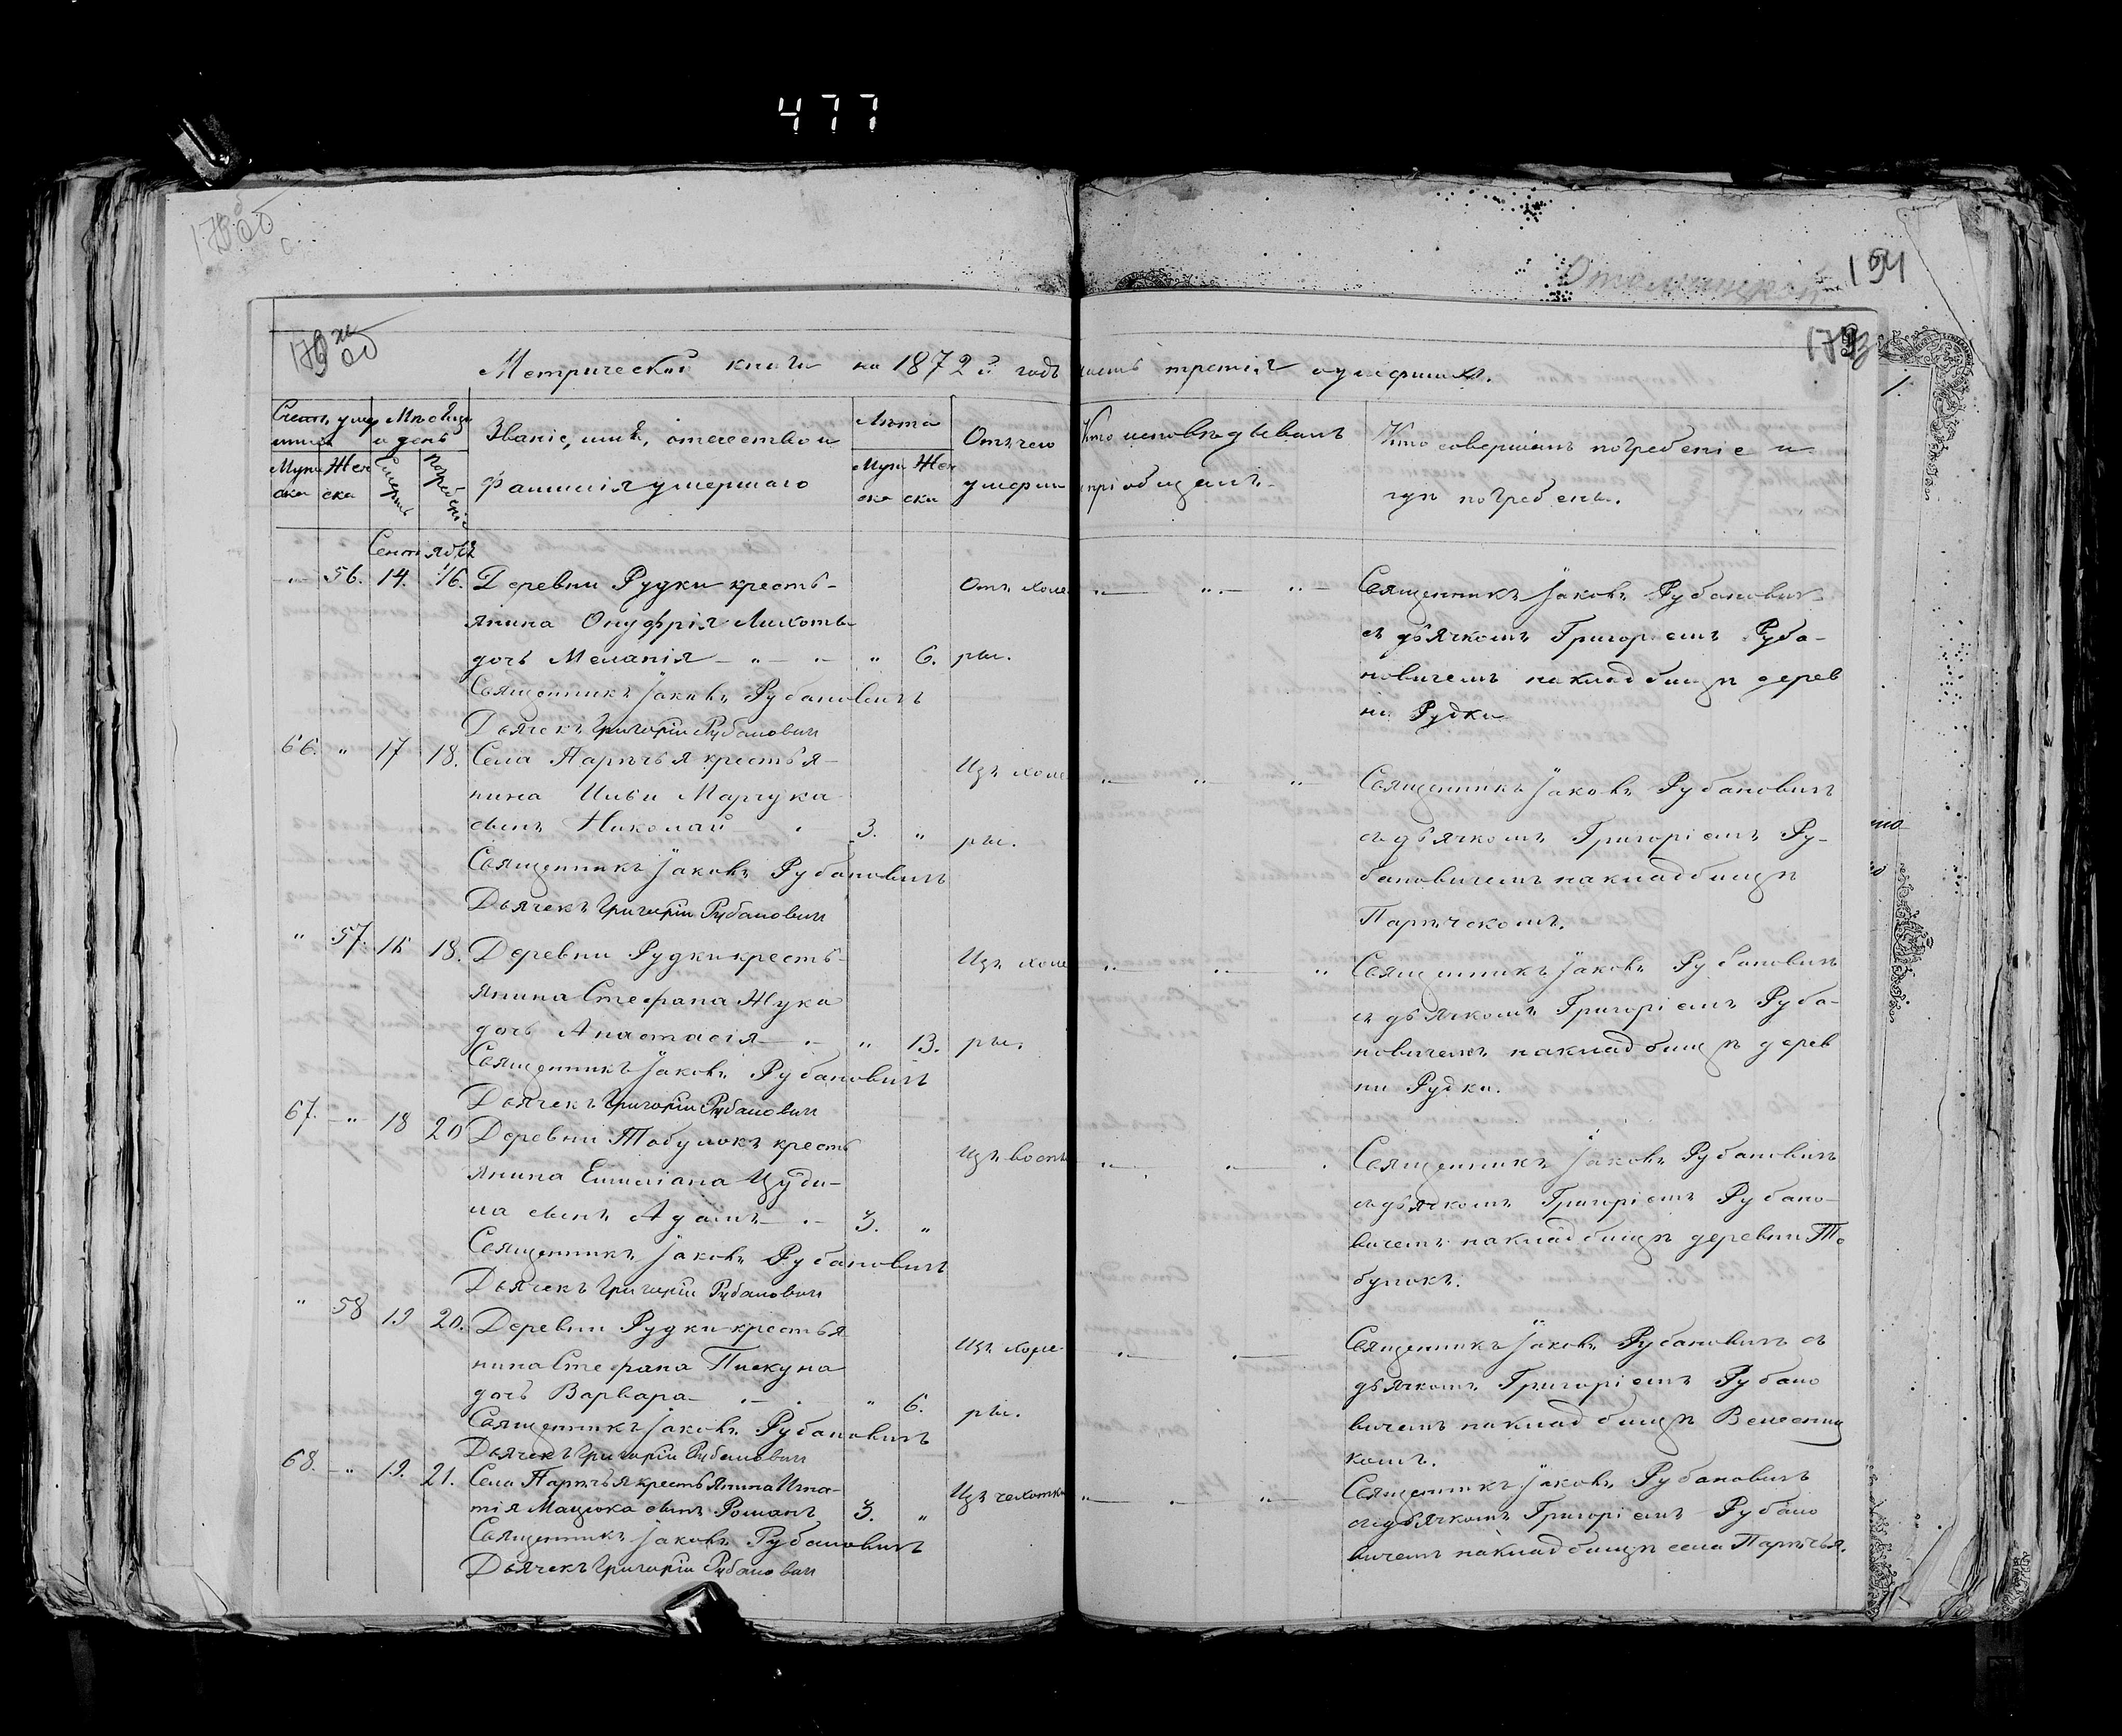 477
194
Метрической книги на 1872й годъ часть третія о умершихъ.
Счетъ умер
шихъ
Мѣсяцъ
и день
Званіе, имя, отечество и
фамилія умершаго
Лѣта
Отъ чего
умеръ
Кто исповѣдывалъ
и пріобщалъ.
Кто совершалъ погребеніе и
гдѣ погребены.
Муже
ска
Жен
ска
Смерть
Погребеніе
Муже
ска
Жен
ска
Сентябрь
" 56. 14. 16. Деревни Рудки кресть-
янина Онуфрія
дочь Меланія " 6.
Отъ холе
ры.
Священникъ Іаковъ Рубановичъ
Дьячекъ Григорій Рубанович
Священникъ Іаковъ Рубановичъ
съ дьячкомъ Григоріемъ Руба-
новичемъ на кладбищѣ дерев
ни Рудки
66. " 17 18. Села Парѣчья крестья-
нина Ильи Марчука
сынъ Николай 3. "
Изъ холе
ры.
Священникъ Іаковъ Рубановичъ
Дьячекъ Григорій Рубанович
Священникъ Іаковъ Рубановичъ
съ дьячкомъ Григоріемъ Ру-
бановичемъ на кладбищѣ
Парѣчскомъ.
" 57. 16 18. Деревни Рудки кресть-
янина Стефана Жука
дочь Анастасія " 13.
Изъ холе
ры.
Священникъ Іаковъ Рубановичъ
Дьячекъ Григорій Рубанович
Священникъ Іаковъ Рубановичъ
съ дьячкомъ Григоріемъ Руба-
новичемъ на кладбищѣ дерев
ни Рудки.
67. " 18 20 Деревни Тобулокъ кресть
янина Емиліана Цуди-
ла сынъ Адамъ 3. "
Изъ воспы
Священникъ Іаковъ Рубановичъ
Дьячекъ Григорій Рубанович
Священникъ Іаковъ Рубановичъ
съ дьячкомъ Григоріемъ Рубано-
вичемъ на кладбищѣ деревни То
булокъ.
" 58 19 20. Деревни Рудки крестья
нина Стефана Пискуна
дочь Варвара " 6.
Изъ холе-
ры.
Священникъ Іаковъ Рубановичъ
Дьячекъ Григорій Рубанович
Священникъ Іаковъ Рубановичъ съ
дьячкомъ Григоріемъ Рубано
вичемъ на кладбищѣ
комъ.
68. " 19. 21. Села Парѣчья крестьянина Игна-
тія Мацюка сынъ Романъ 3. "
Изъ чахотки
Священникъ Іаковъ Рубановичъ
Дьячекъ Григорій Рубанович
Священникъ Іаковъ Рубановичъ
съ дьячкомъ Григоріемъ Рубано
вичемъ на кладбищѣ села Парѣчья.